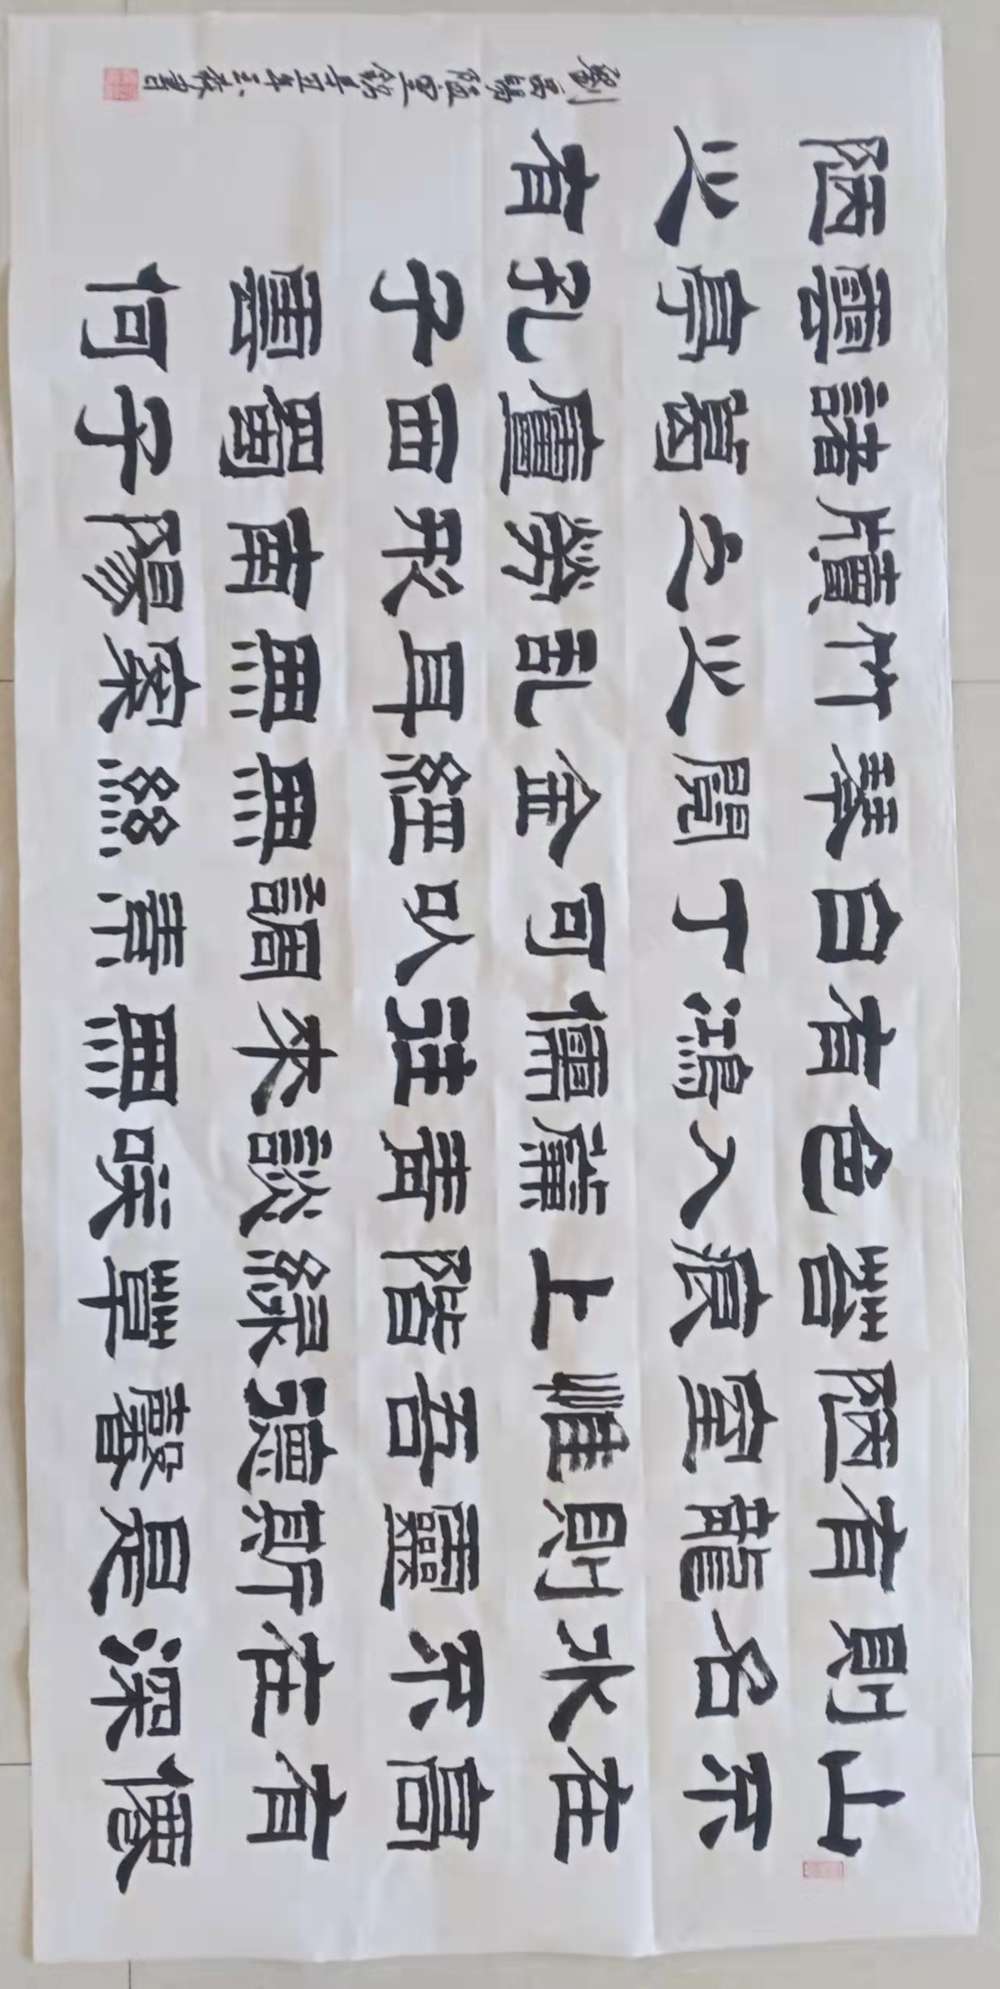 山不在高有僊
則名水不在深
有龍則靈斯是
陋室惟吾德馨
苔痕上階緑草
色入簾青談咲
有鴻儒往來無
白丁可以調素
琴閱金經無絲
竹之乱耳無案
牘之勞形南陽
諸葛廬西蜀子
雲亭孔子雲何
陋之有
劉禹錫陋室銘辛丑年三秋書